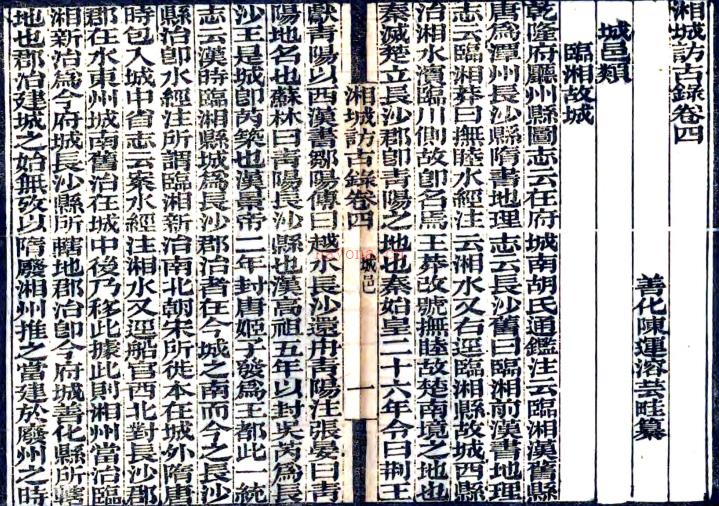 湘城訪古錄卷四
善化陳運溶芸畦纂
城邑類
臨湘故城
乾隆府廳州縣圖志云在府城南胡氏通鑑注云臨湘漢舊縣
唐爲潭州長沙縣隋書地理志云長沙舊曰臨湘前漢書地理
志云臨湘莽曰撫睦水經注云湘水又右逕臨湘縣故城西縣
治湘水濱臨川側故卽名焉王莽改號撫睦故楚南境之地也
秦滅楚立長沙郡卽青陽之地也秦始皇二十六年令曰荆王
湘城訪古錄卷四
城邑
一
獻青陽以西漢書鄒陽傳曰越水長沙還舟青陽注張晏曰青
陽地名也蘇林曰青陽長沙縣也漢高祖五年以封吳芮爲長
沙王是城卽芮築也漢景帝二年封唐姬子發爲王都此一統
志云漢時臨湘縣城爲長沙郡治者在今城之南而今之長沙
縣治卽水經注所謂臨湘新治南北朝宋所徙本在城外隋唐
時包入城中省志云案水經注湘水又逕船官西北對長沙郡
郡在水東州城南舊治在城中後乃移此據此則湘州當治臨
湘新治爲今府城長沙縣所轄地郡治卽今府城善化縣所轄
地也郡治建城之始無攷以隋廢湘州推之當建於廢州之時